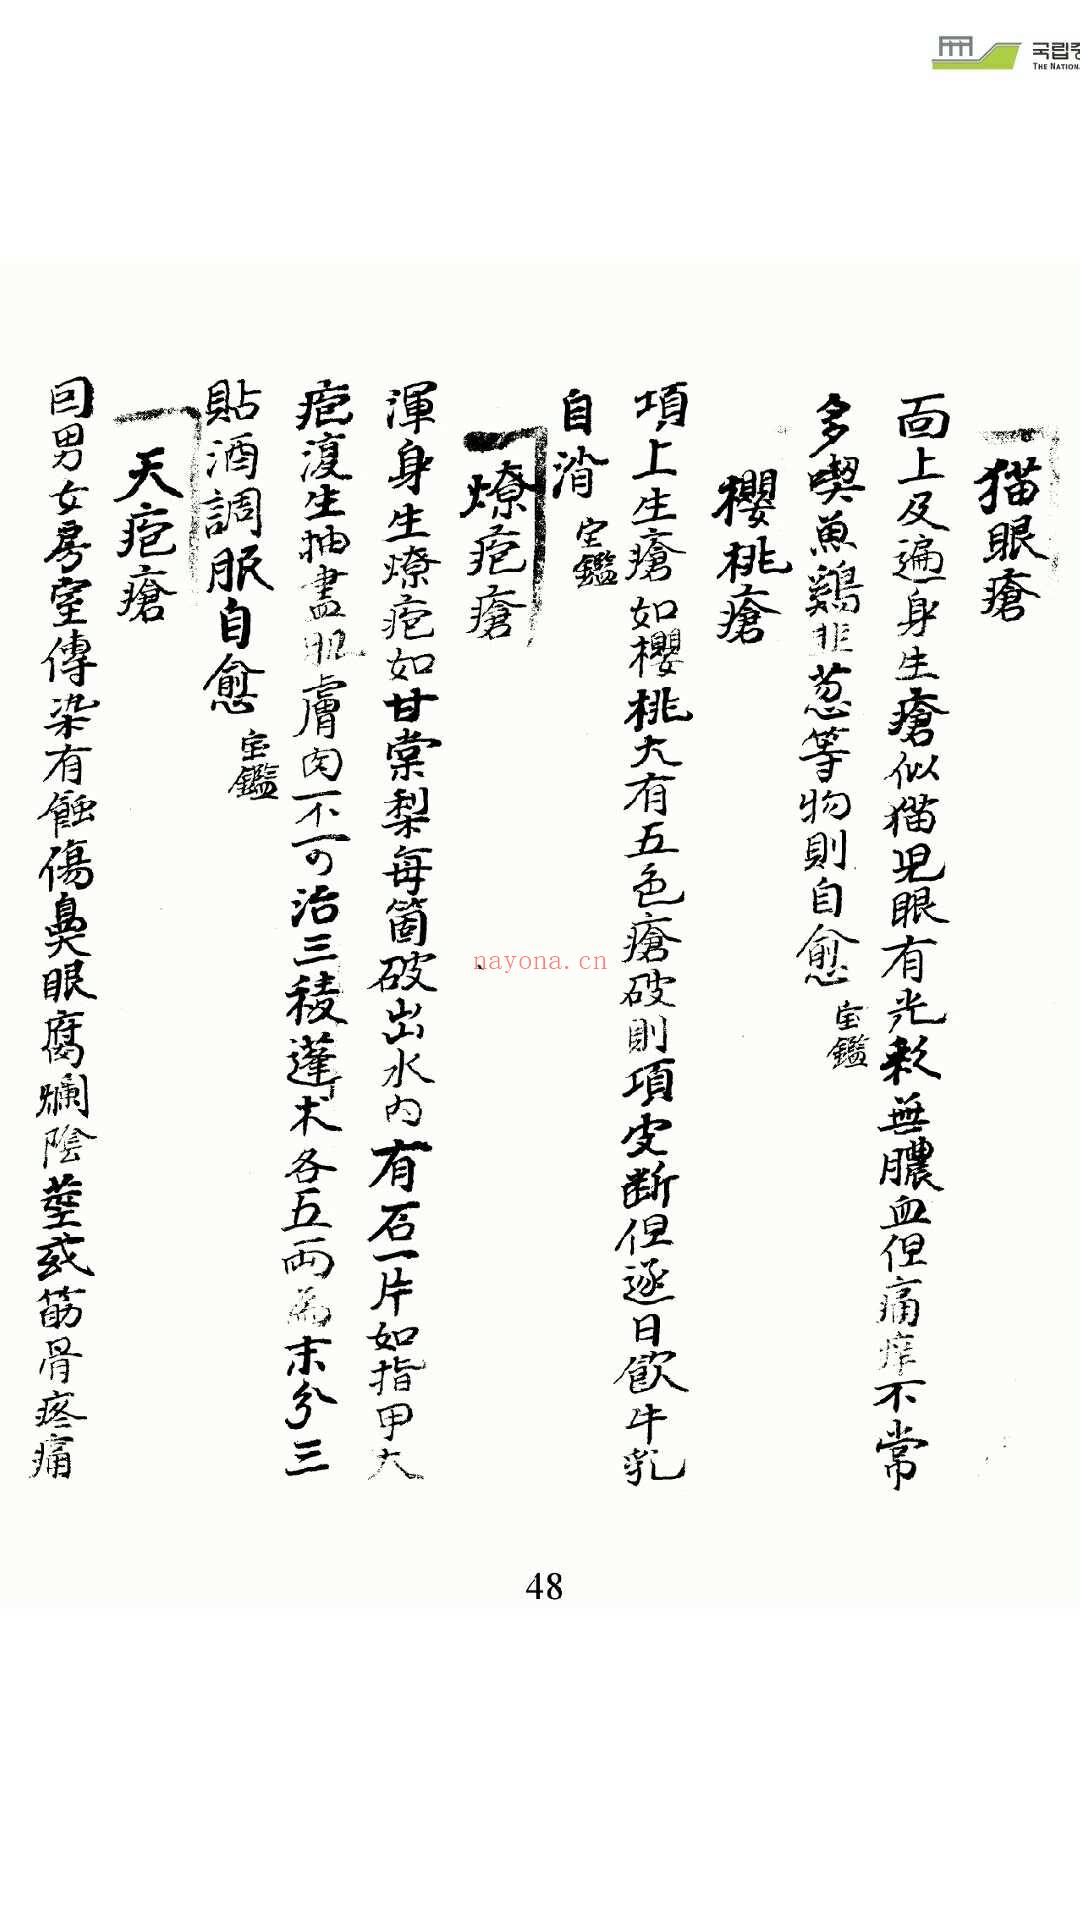 국립중
THE NATIONA
猫眼瘡
面上及遍身生瘡似猫児眼有光彩無膿血但痛痒不常
多喫魚鷄韭葱等物則自愈 宝鑑
櫻桃瘡
項上生瘡如櫻桃大有五色瘡破則項皮断但逐日飮牛乳
自消 宝鑑
燎疱瘡
渾身生燎疱如甘棠梨每箇破出水內有石一片如指甲大
疱復生抽盡肌膚肉不可治三稜蓬朮各五両為末分三
貼酒調服自愈 宝鑑
天疱瘡
因男女房室傳染有蝕傷鼻眼腐爛陰莖或筋骨疼痛
nayona.cn
48